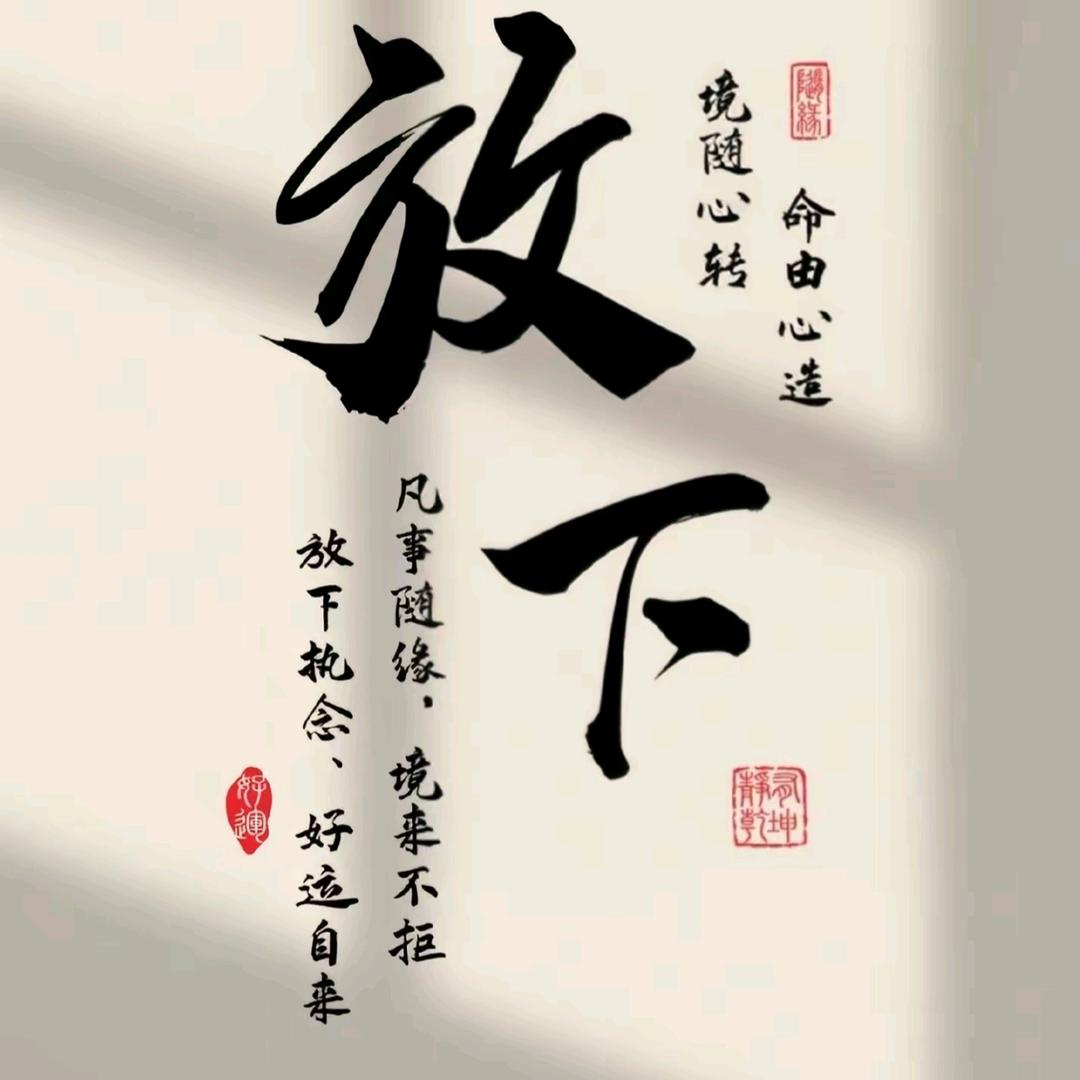 随缘
命由心造
境随心转
放下
凡事随缘，境来不拒
放下执念、好运自来
好運